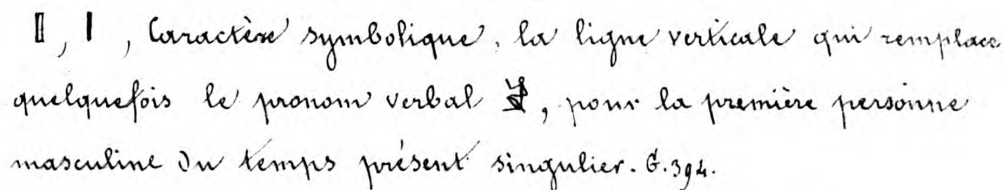 𓏺, 𓏺, Caractère symbolique, la ligne verticale qui remplace
quelquefois le pronom verbal 𓀀, pour la première personne
masculine du temps présent singulier. G. 394.